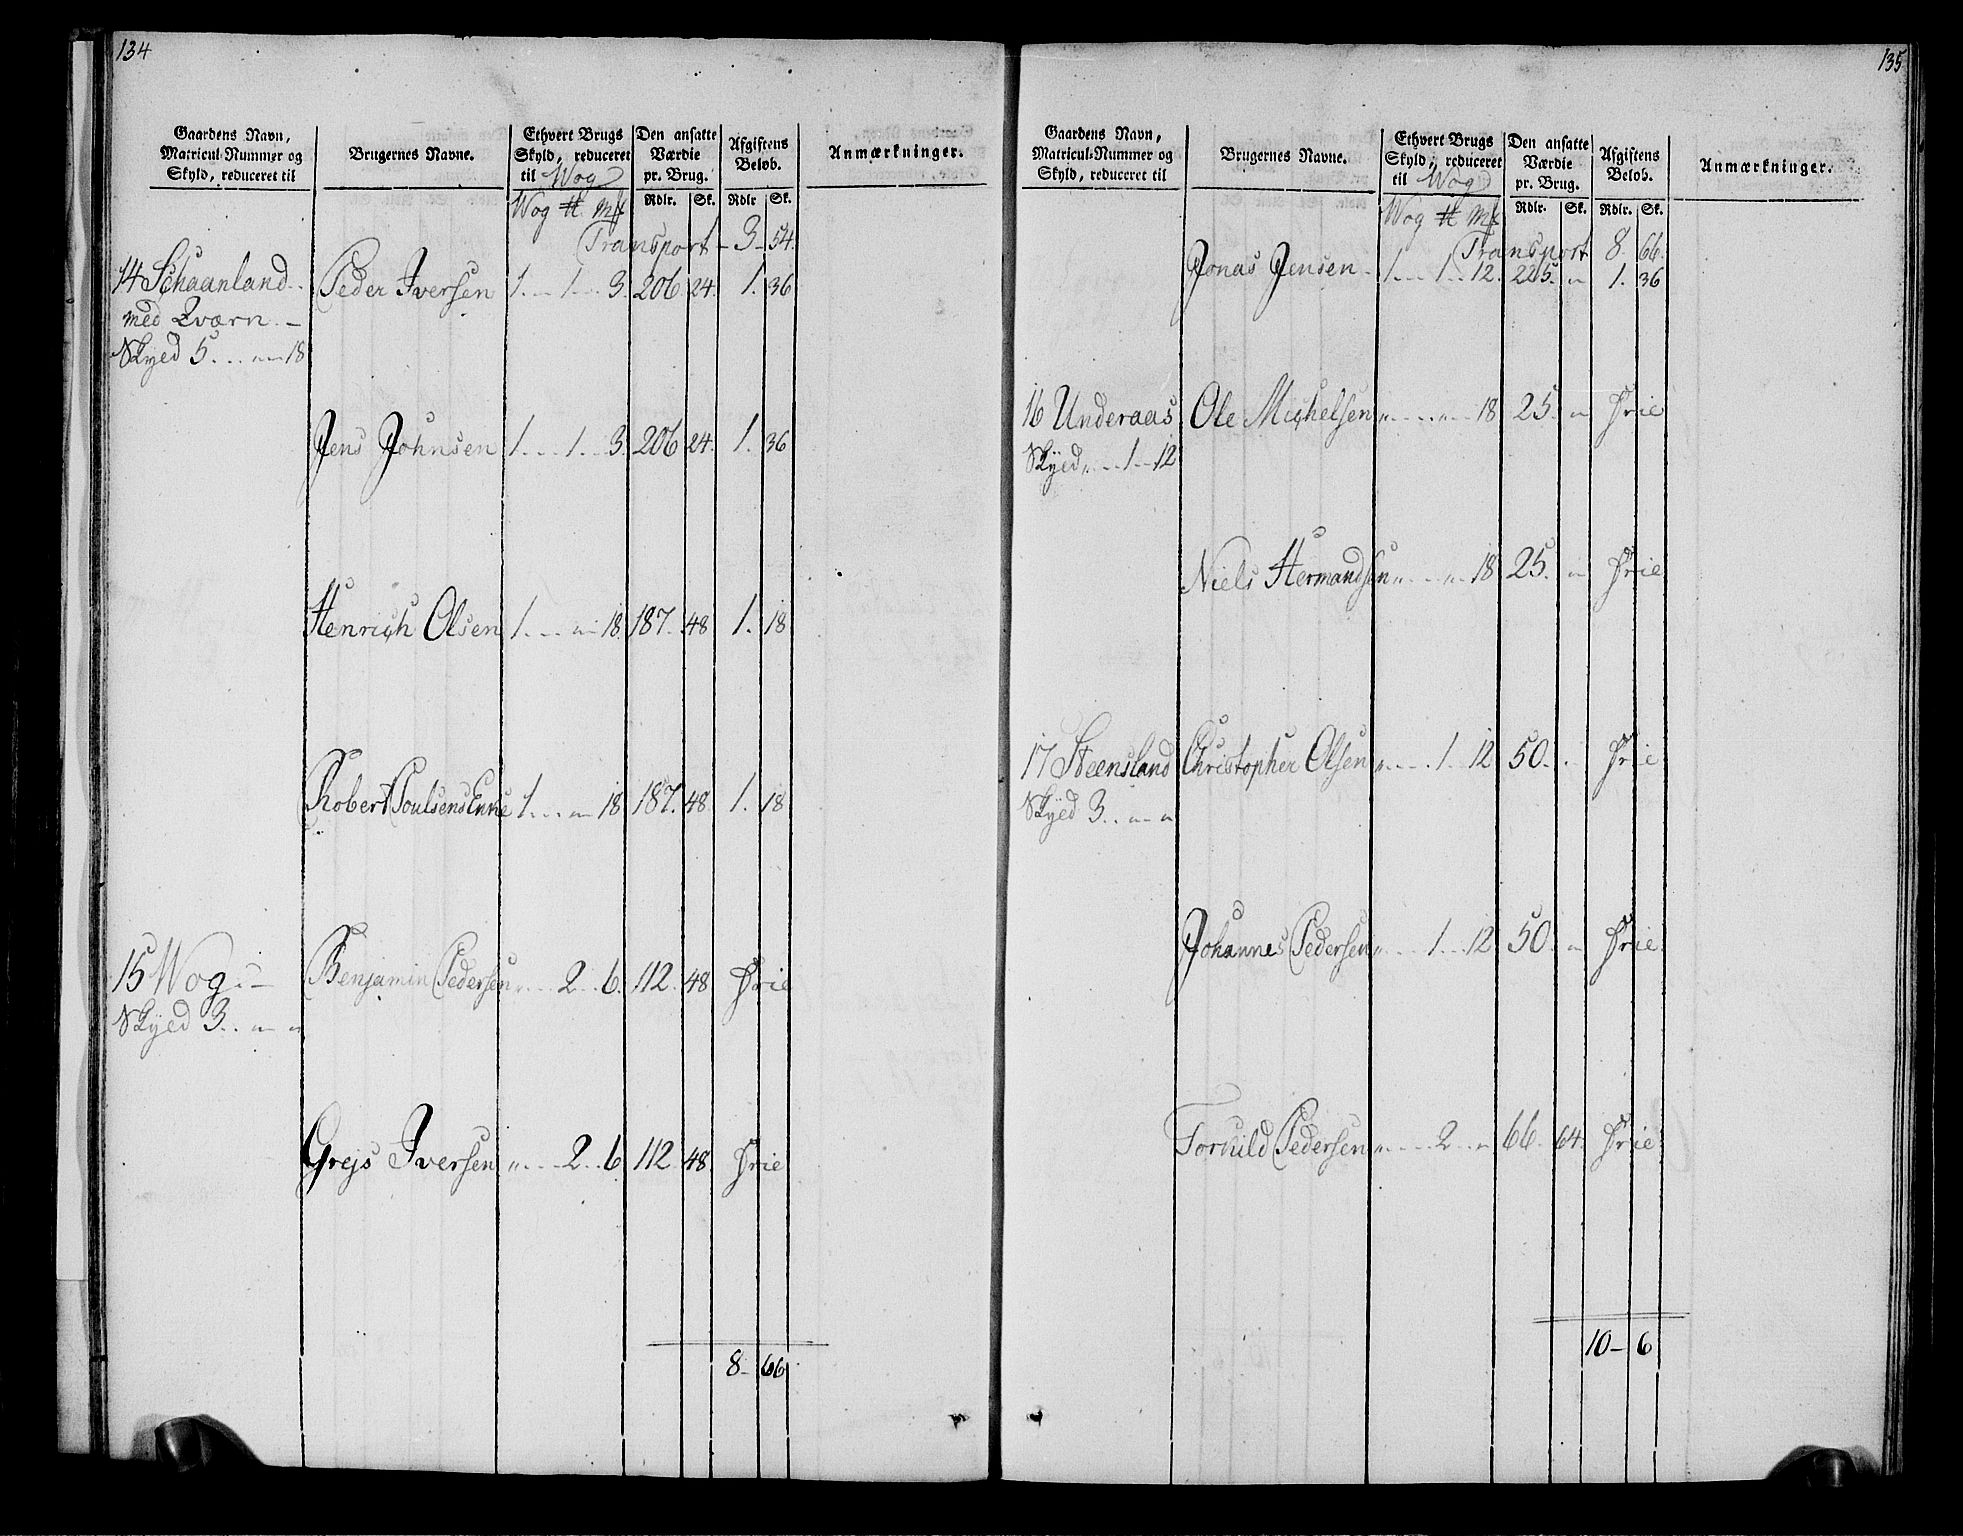 134
Gaardens Navn, Matricul-Nummer og Skyld, reduceret til
Brugernes Navne.
Ethvert Brugs Skyld, reduceret til Wog
Den ansatte Værdie pr. Brug.
Afgiftens Beløb.
Anmærkninger.
Wog ℔ Mk Rdlr. Sk. Rdlr Sk.
Transport - 3 - 54
14 Schaanland Peder Iversen 1 1 3 206 24 1. 36
med Qværn
Skyed 5 " 18
Jens Johnsen 1 1 3 206 24 1. 36
Henrich Olsen 1 " 18 187 48 1. 18
Robert Poulsens Enke 1 " 18 187. 48 1. 18
15 Wog Benjamin Pedersen " 2 6 112 48 Frie
Skyed 3 " "
Grejs Iversen " 2 6 112 48 Frie
8 - 66
135
Gaardens Navn, Matricul-Nummer og Skyld, reduceret til
Brugernes Navne.
Ethvert Brugs Skyld, reduceret til Wog
Den ansatte Værdie pr. Brug.
Afgiftens Beløb.
Anmærkninger.
Wog ℔ Mk Rdlr. Sk. Rdlr. Sk.
Transport 8 66
Jonas Jensen 1 1 12 225 " 1. 36
16 Underaas Ole Michelsen " " 18 25 " Frie
Skyed " 1 12
Niels Hermandsen " " 18 25 " Frie
17 Steensland Christopher Olsen " 1 12 50 Frie
Skyed 3 " "
Johannes Pedersen " 1 12 50 " Frie
Pedersen " 2 " 66 64 Frie
10 - 6